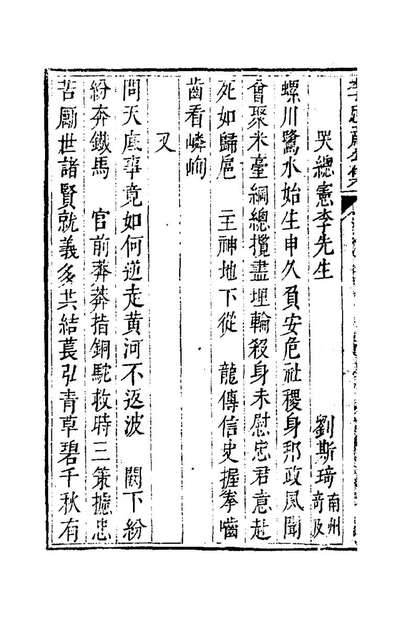 哭總憲李先生
劉斯琦南州奇及
螺川鷺水始生申久負安危社稷身邦政風聞
會聚米臺綱總攬盡埋輪殺身未慰忠君意赴
死如歸扈 主神地下從 龍傳信史握拳嚙
齒看嶙峋
又
問天底事竟如何逆走黃河不返波 闕下紛
紛奔鐵馬 宮前莽莽指銅駝救時三策擁忠
苦厲世諸賢就義多共結萇弘青草碧千秋有